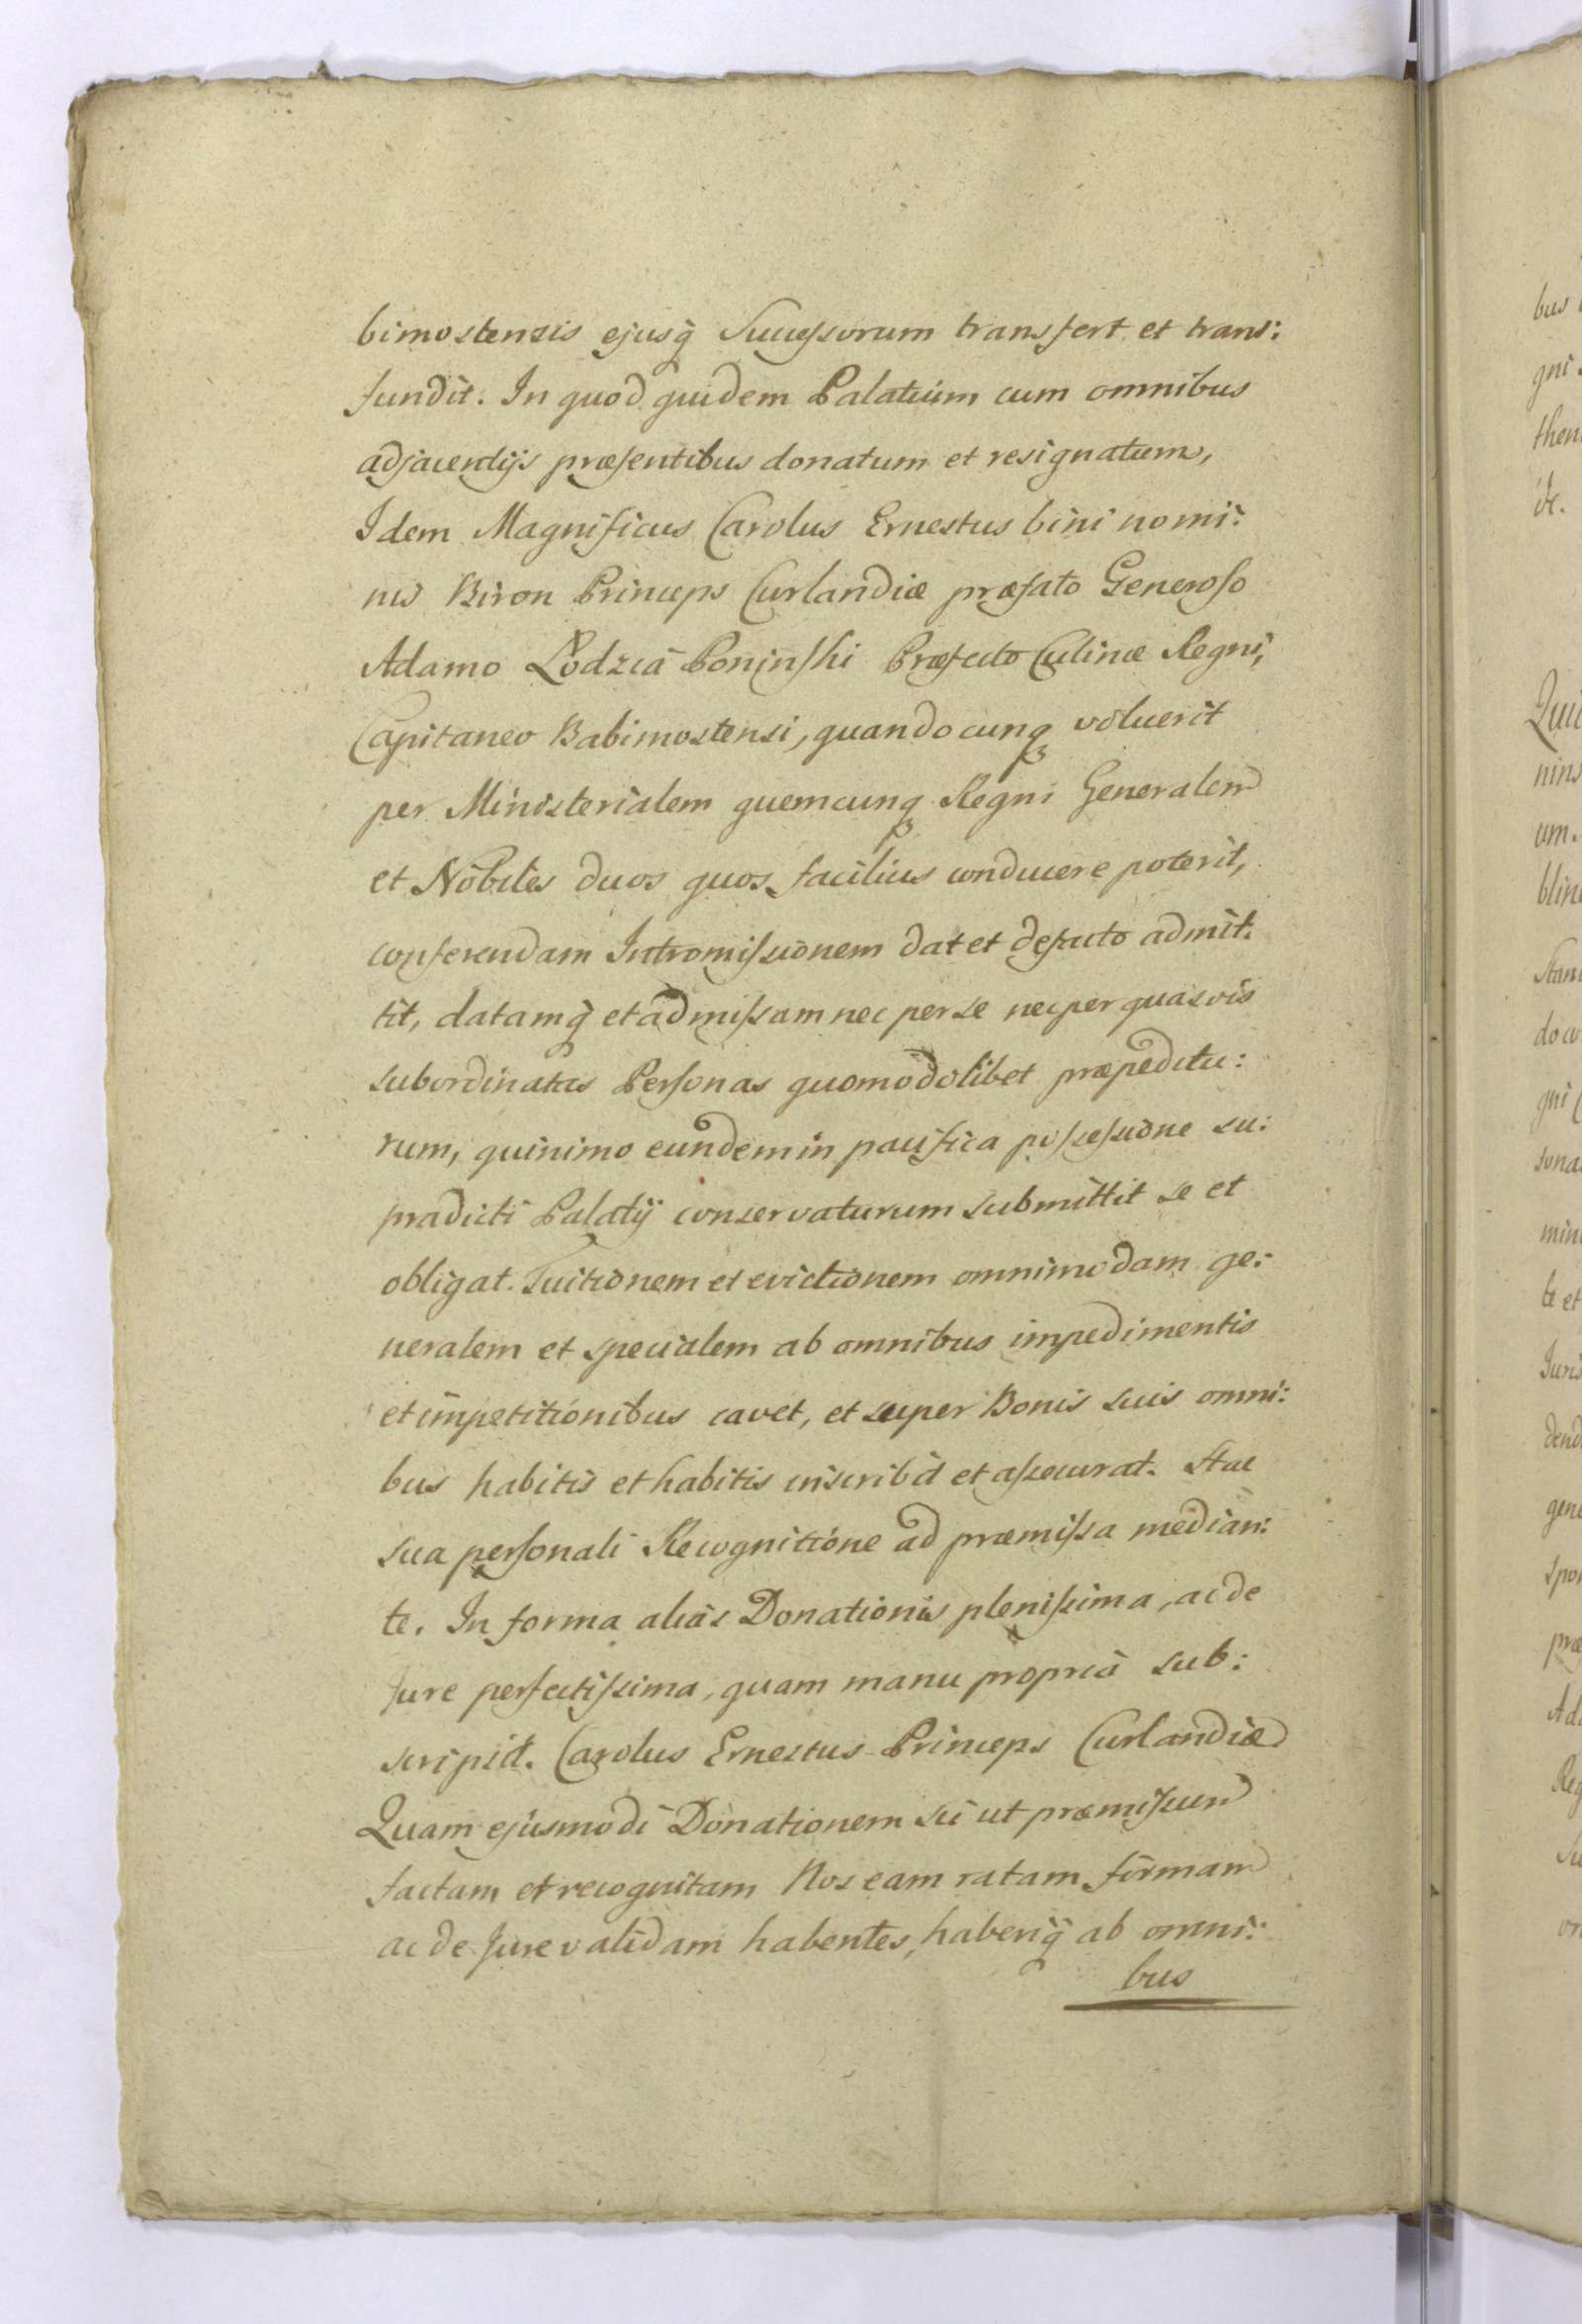 bimostensis ejusq̃ Sucessorum transfert et trans:
fundit. In quod quidem Palatium cum omnibus
adjacentijs præsentibus donatum et resignatum,
Idem Magnificus Carolus Ernestus bini nomi:
nis Biron Princeps Curlandiæ præfato Generoso
Adamo Lodzia Poninski Præfecto Culinæ Regni,
Capitaneo Babimostensi, quandocunq voluerit
per Ministerialem quemcunq Regni Generalem
et Nobiles duos quos facilius conducere poterit,
conferendam Intromissionem dat et defacto admit:
tit, datamq̃ et admissam nec per se nec per quasvis
subordinatas Personas quomodolibet præpeditu:
rum, quinimo eundem in pacifica possessione su:
pradicti Palatij conservaturum submittit se et
obligat. Tuitionem et evictionem omnimodam ge:
neralem et specialem ab omnibus impedimentis
et impetitionibus cavet, et super Bonis suis omni:
bus habitis et habitis inscribit et assecurat. Hac
sua personali Recognitione ad præmissa median:
te. In forma aliàs Donationis plenissima, ac de
Jure perfectissima, quam manu propriâ sub:
scripsit. Carolus Ernestus Princeps Curlandiæ
Quam ejusmodi Donationem sic ut præmissum
factam et recognitam Nos eam ratam firmam
ac de Jure validam habentes, haberiq̃ ab omni:
bus
bus
gni
um.
docu
gni
sona
te et
gene
Ad
Reg